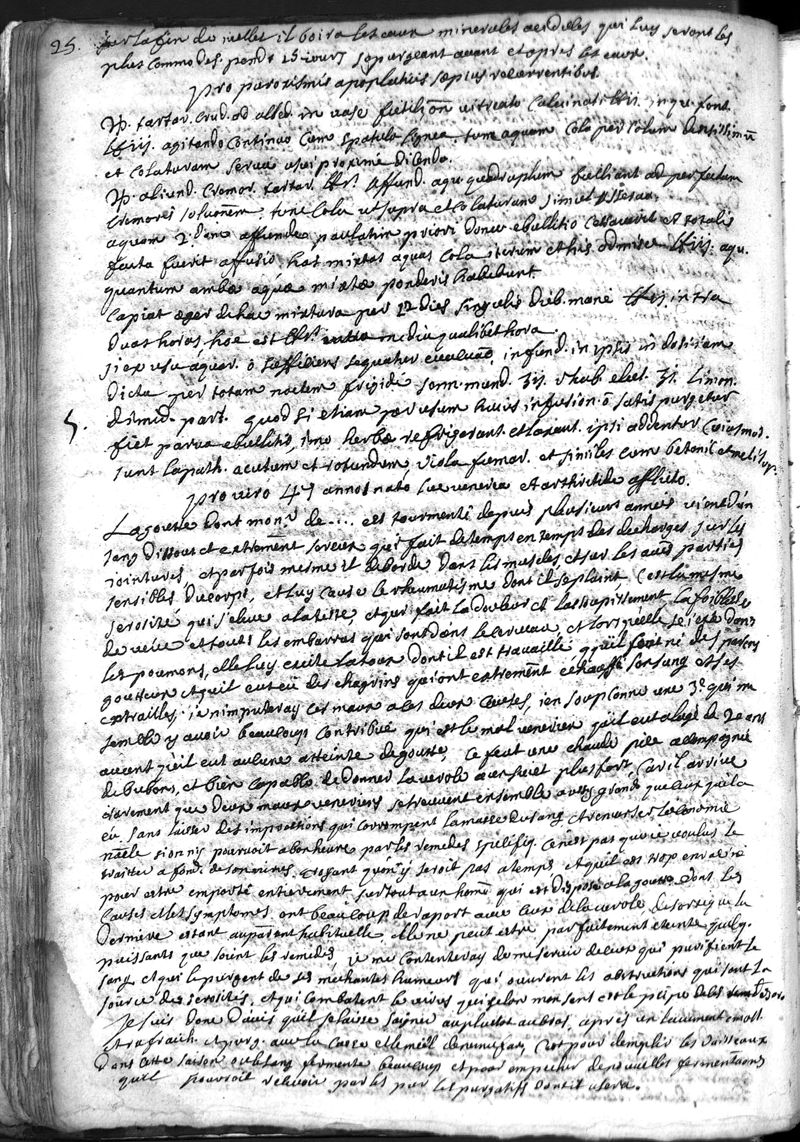 25. sur la fin de juillet il boira les eaux minerales acidules qui luy seront les
plus commodes, pendt 15 jours se purgeant avant et apres les eaux.
pro paroxismis apoplecticis sæpius recurrentibus.
℞. tartar. crud. ad albed. in vase fictili non vitreato calcinati in qu. font.
agitando continuo cum spatula lignea, tum aquam cola per
et colaturam serva usui proxime dicendo.
℞. aliund. cremor. tartar. affund. aqu. quadruplum bulliant ad perfectam
cremoris solutionem, tunc cola ut supra et colaturam simul
aquam 2.dam affunde paulatim priori donec ebullitio cessaverit et totalis
facta fuerit affusio, has mixtas aquas cola iterum et his admisce aqu.
quantum ambæ aquæ mixtæ ponderis habebunt
capiat æger de hac mixtura per 12 dies singulis dieb. mane intra
duas horas, hoc est media qualibet hora
si ex usu aquar. sequatur evacuao, infund. in ipsis in dosi jam
dicta per totam noctem frigide senn. mund. ʒij. rhab. elect. ʒj. limon.
dimid. part. quod si etiam per usum huius infusion. satis purgetur
5. fiet parva ebullitio, imo herbæ refrigerant. et laxant. ipsi addentur cuiusmod.
sunt lapath. acutum et rotundum viola fumar. et similes cum betonic. et
pro viro 47 annos nato lue venerea et arthritide afflicto.
La goutte dont monr. de .... est tourmenté depuis plusieurs années vient d'un
sang dissout et extremement sereux qui fait de temps en temps des decharges sur les
jointures, et parfois mesme il deborde dans les muscles, et sur les autres parties
sensibles du corps, et luy cause le rhumatisme dont il se plaint, c'est la mesme
serosité qui s'eleve a la teste, et qui fait la douleur et l'assoupissement la foiblesse
de veüe et touts les embarras qui sont dans le cerveau, et lorsqu'elle se jette dans
les poumons, elle luy excite la toux dont il est travaillé quoiqu'il soit né de parens
goutteux et qu'il eut eü des chagrins qui ont extremement echauffé son sang et ses
entrailles: je n'imputeray ces maux a ces deux causes, j'en soupconne une 3e qui me
semble y avoir beaucoup contribué, qui est le mal venerien qu'il eut a l'age de 20 ans
avant qu'il eut aulcune atteinte de goutte, ce feut une chaude pisse accompagnée
de bubons, et bien capable de donner la verole a un sujet plus fort, car il arrive
rarement que deux maux veneriens se treuvent ensemble aussy grands que ceux qu'il a
eu, sans laisser des impressions qui corrompent la masse du sang et renverser l'economie
naelle si on n'y pourvoit a bonheure par les remedes specifiq. ce n'est pas que je voulus le
traitter a fond de son virus, croyant qu'on n'y seroit pas a temps et qu'il est trop enraciné
pour estre emporté entierement sur tout a un home qui est disposé a la goutte dont les
causes et les symptomes ont beaucoup de raport avec ceux de la verole de sorte que la
derniere estant apparent habituelle elle ne peut estre parfaitement eteinte quelq.
puissants que soient les remedes, je me contenteray de me servir de ceux qui purifient le
sang et qui le purgent de ses mechantes humeurs qui ouvrent les obstructions qui sont la
source des serosités, et qui combatent le virus qui selon mon sens est le pripe de
Je suis donc d'avis qu'il se laisse saigner au plustot au bras, apres un lavement emoll.
et rafraich. et purg. avec la casse et le miel de nenuphar, c'est pour desemplir les vaisseaux
dans cette saison ou le sang fermente beaucoup et pour empecher de nouvelles fermentaons
qu'il pourroit recevoir par les purgatifs dont il usera.